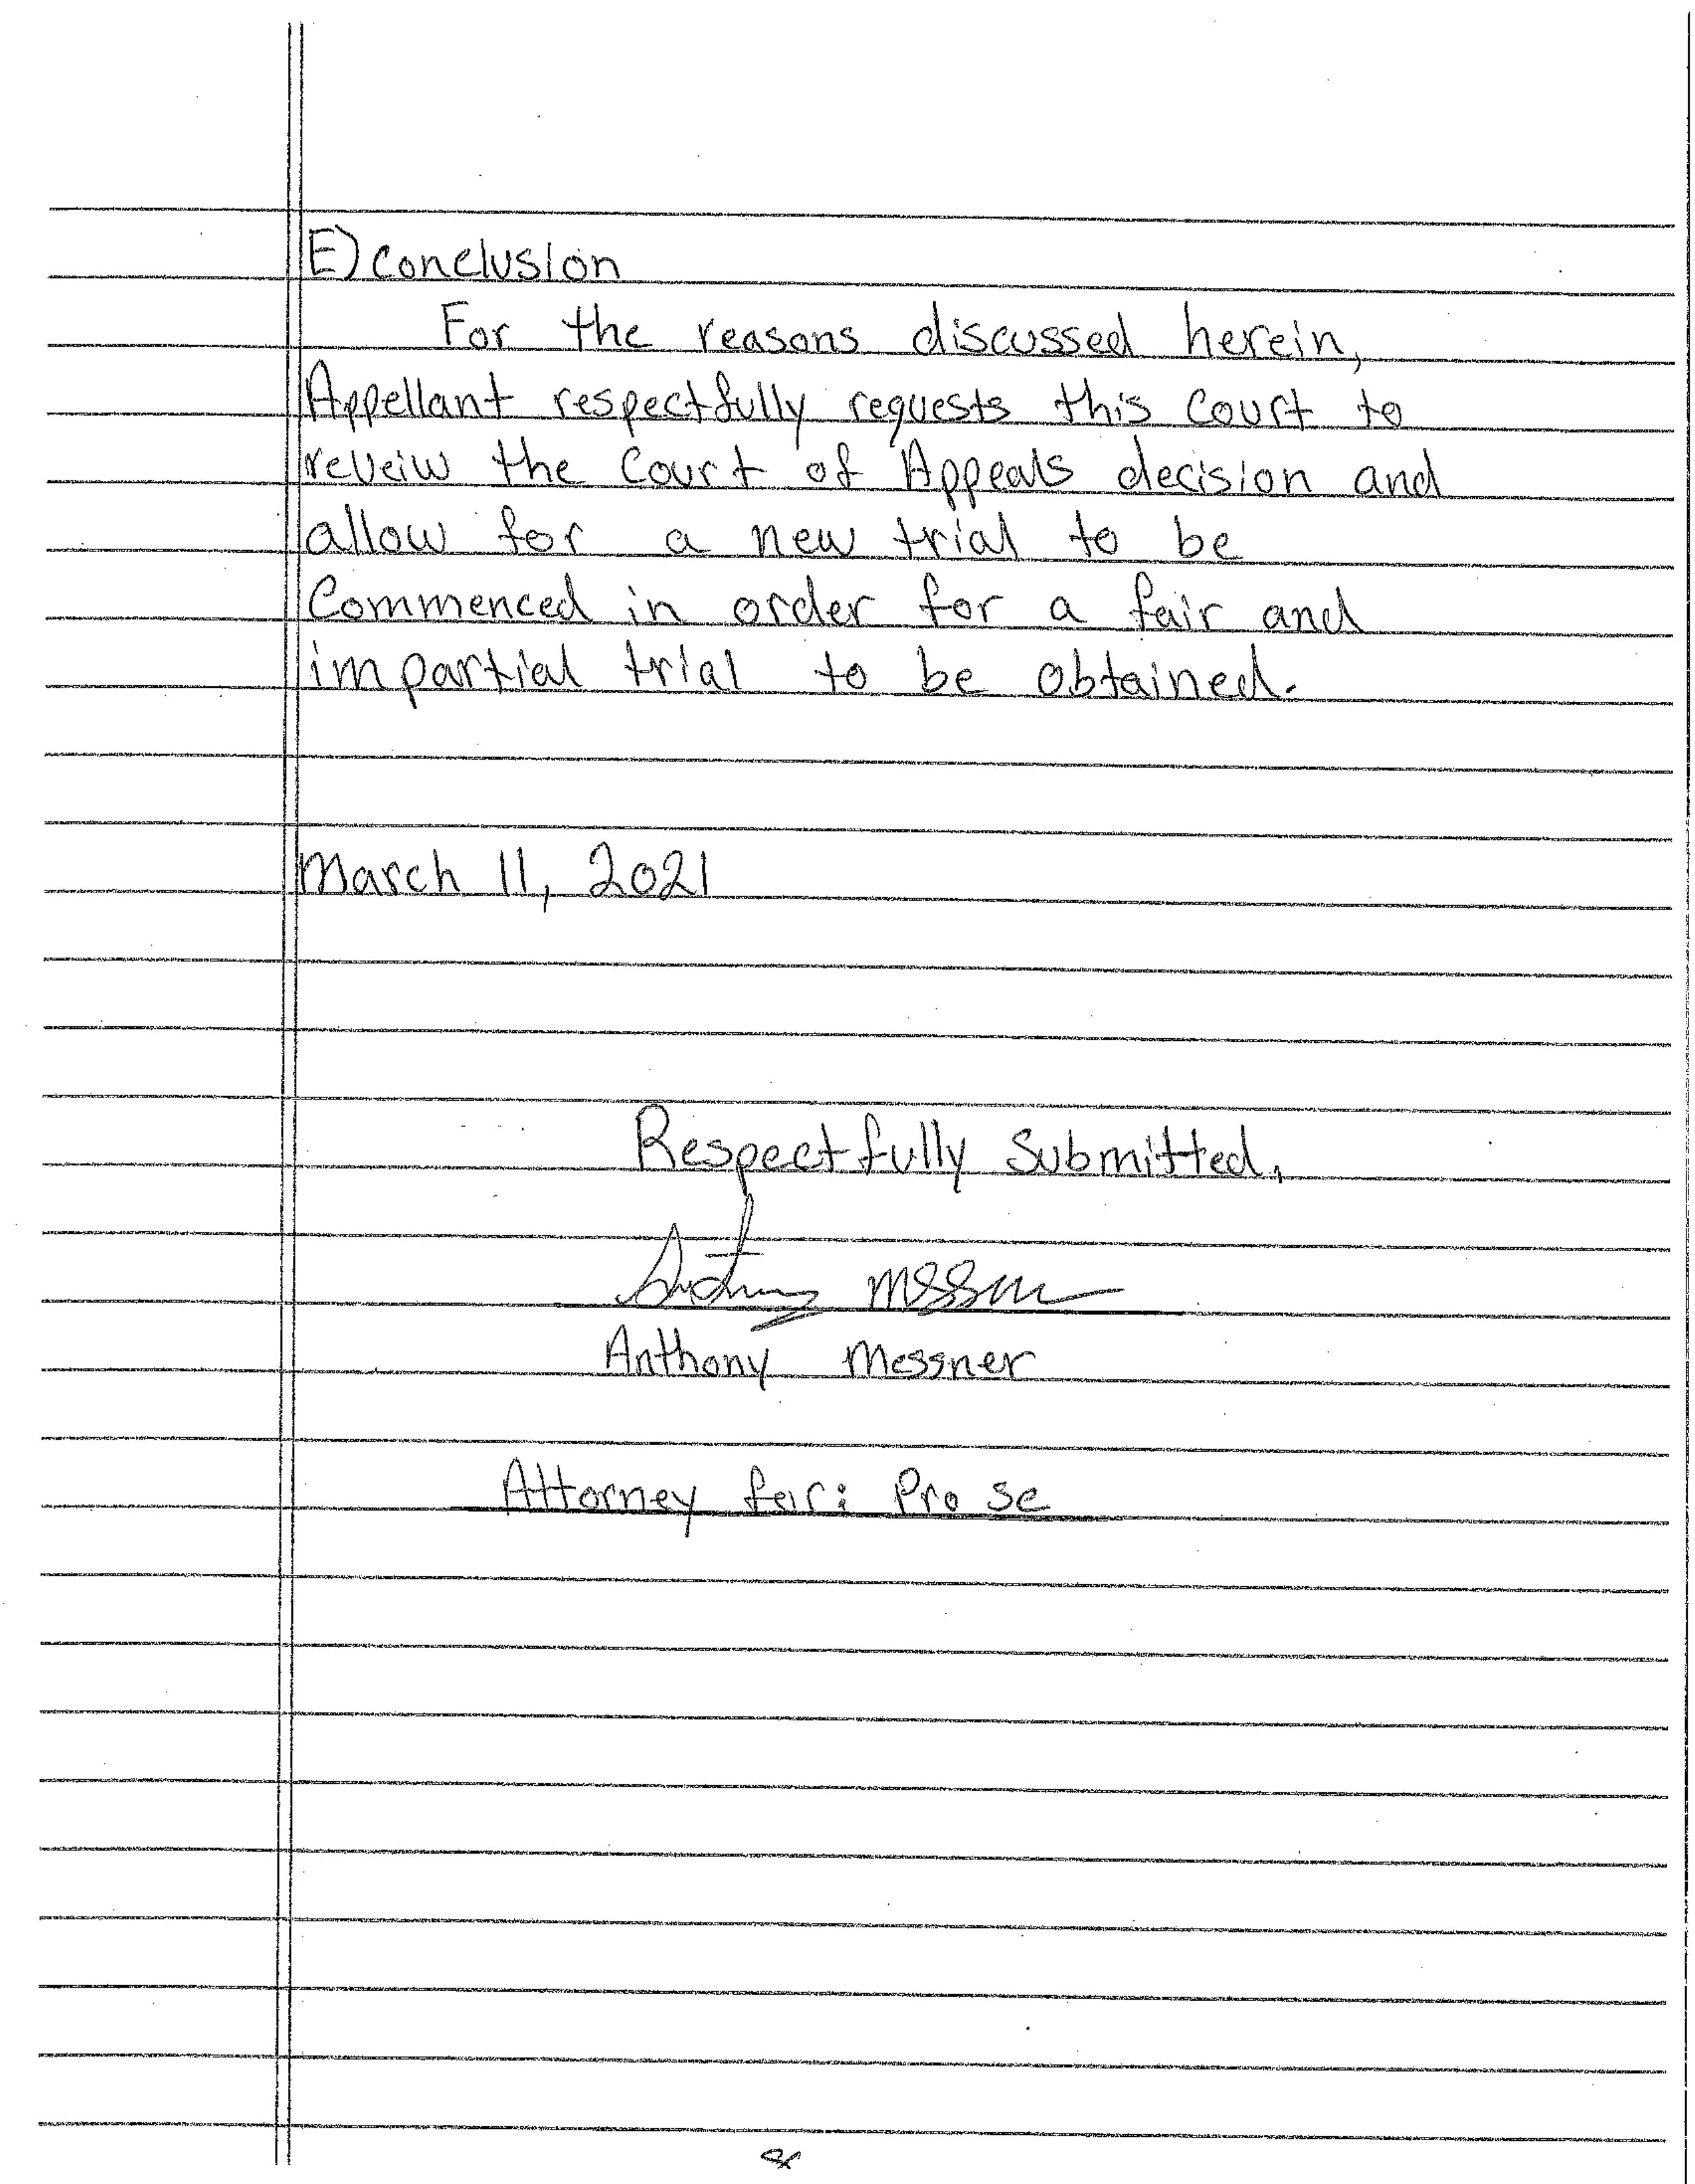 E) Conclusion
For the reasons discussed herein,
Appellant respectfully requests this Court to
reveiw the Court of Appeals decision and
allow for a new trial to be
Commenced in order for a fair and
impartial trial to be obtained.
March 11, 2021
Respectfully Submitted,
Anthony Messner
Attorney for: Pro se
8